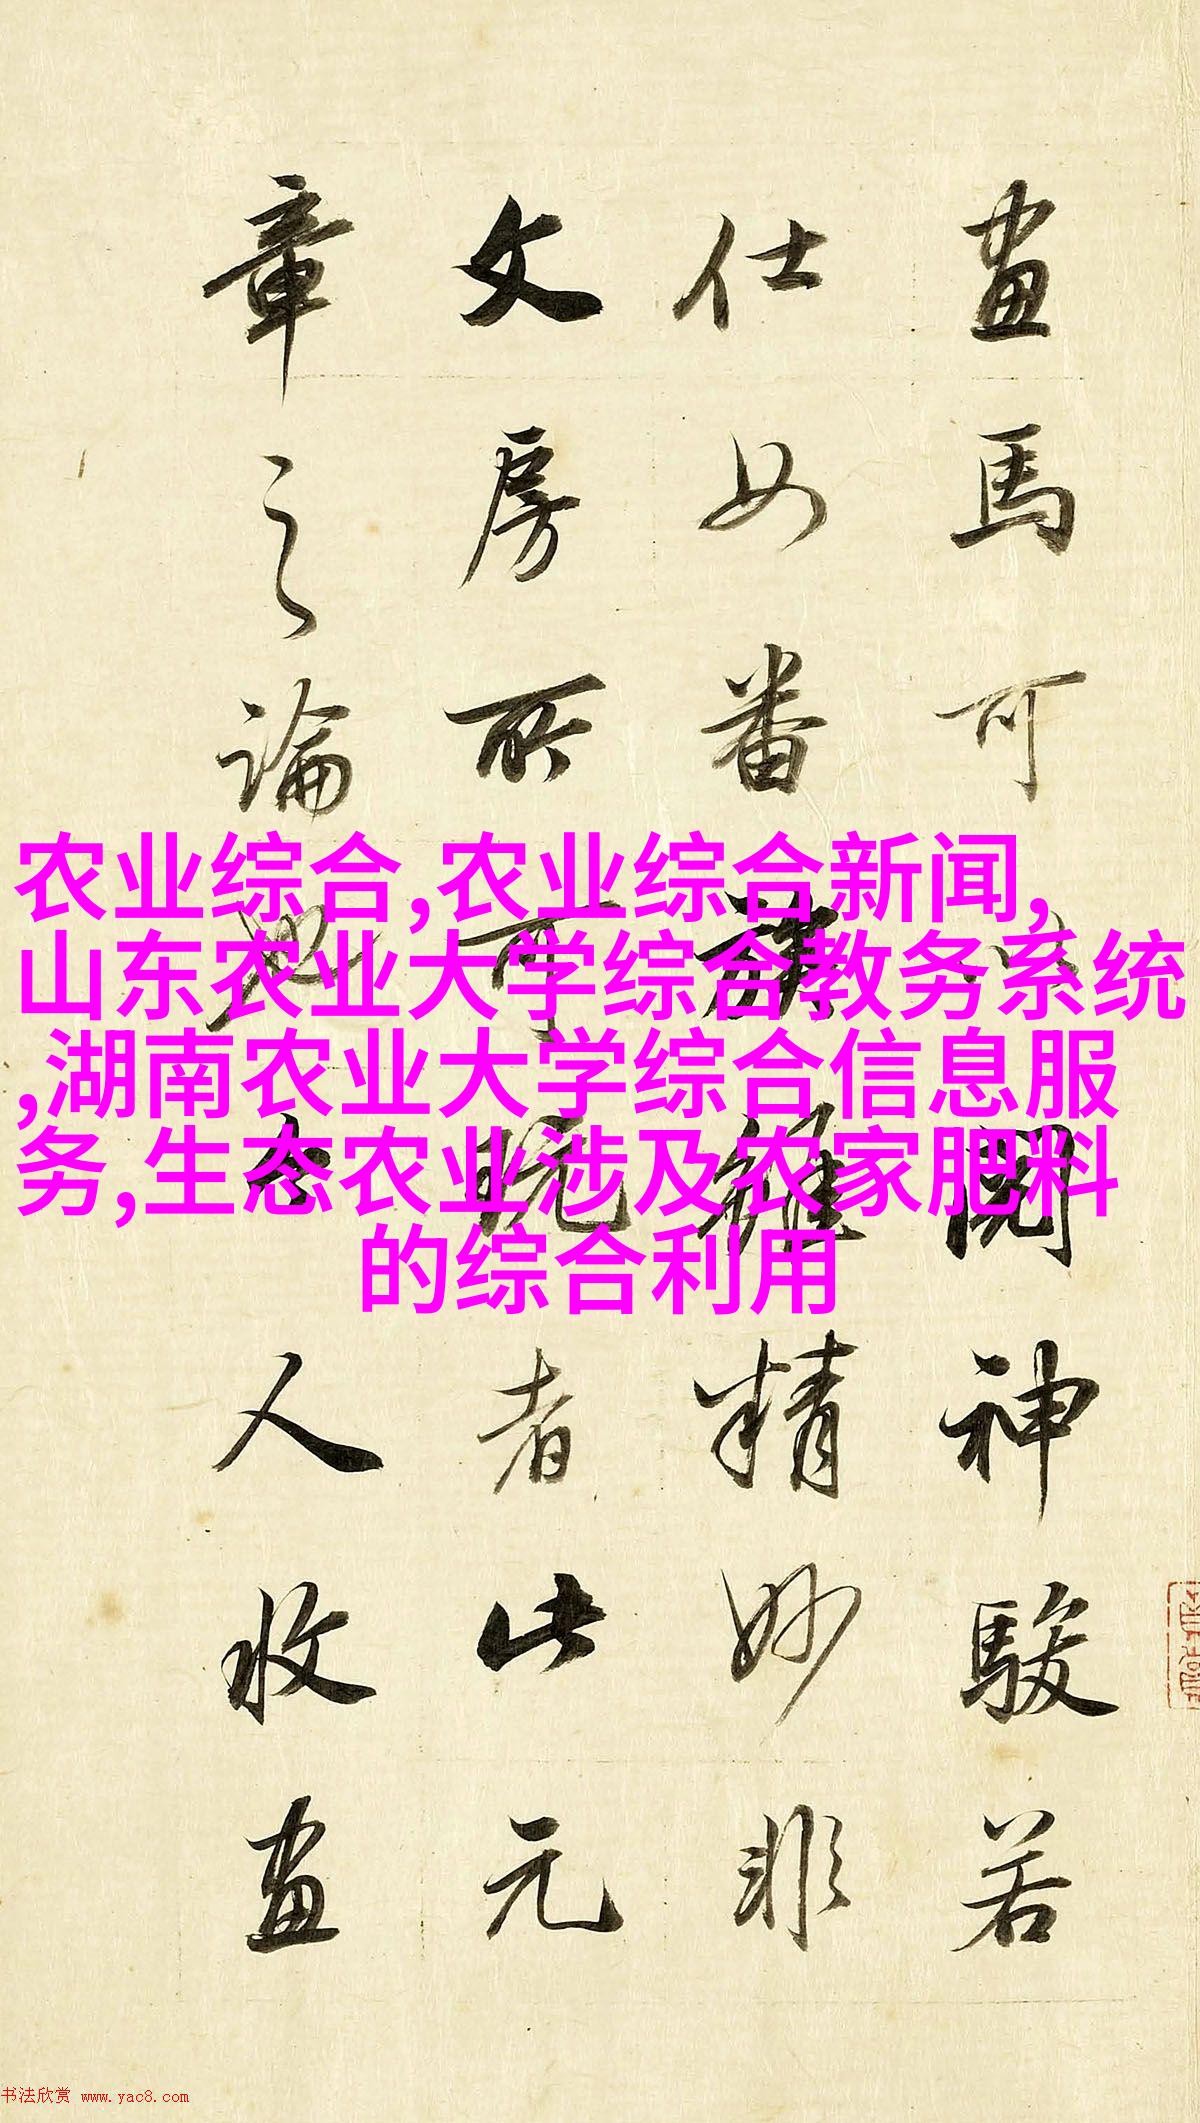 畫馬可以閱神駿若
仕女番族雖精妙非
文房所可玩者此元
章之論也今人收畫
农业综合,农业综合新闻,
山东农业大学综合教务系统
,湖南农业大学综合信息服
务,生态农业涉及农家肥料
的综合利用
书法欣赏 www.yac8.com